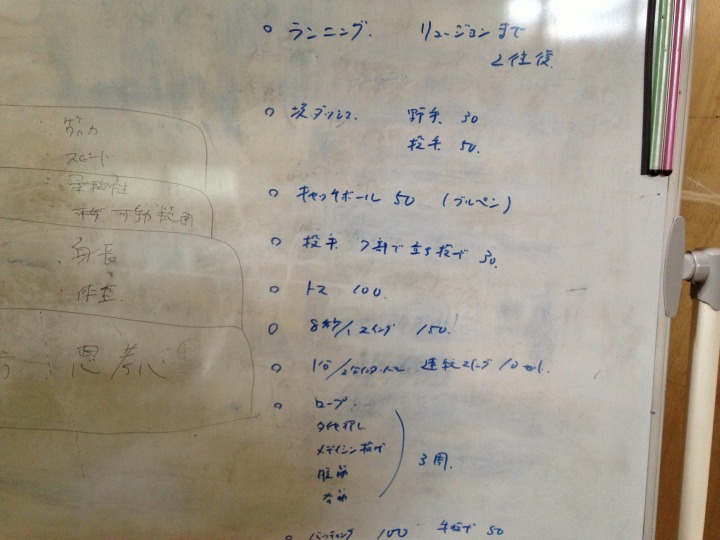 ○ ランニング. リュージョンまで
2往復.
○ 坂ダッシュ. 野手 30
投手 50.
○ キャッチボール 50 (ブルペン)
○ 投手 7割で立ち投げ 30.
○ トス 100.
○ 8秒/1スイング 150.
○ 1分/ 連続スイング 10
○ ロープ.
タイヤ押し
メディシン投げ
腹筋
背筋
3周.
○ バッティング 100 手投げ 50
筋力
スピード
柔軟性
可動範囲
身長
体重
思考